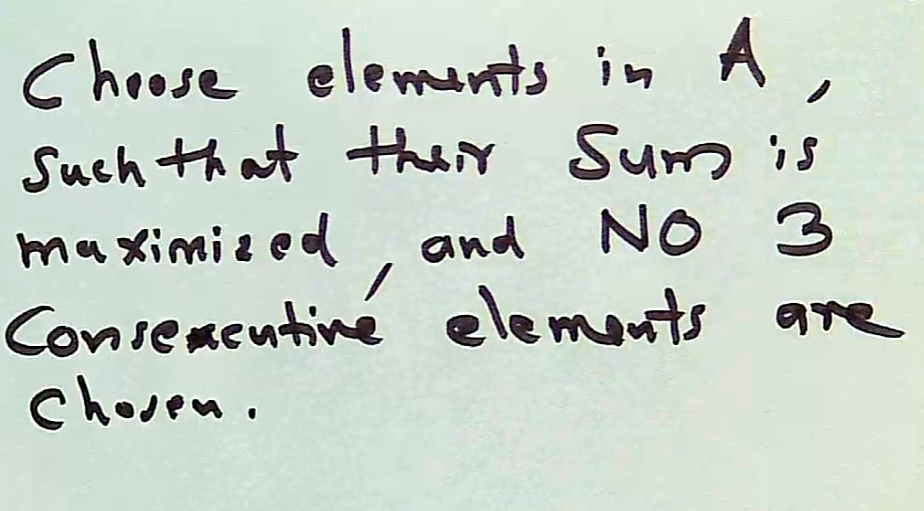 Choose elements in A,
Such that their Sum is
maximized, and NO 3
Consecutive elements are
Chosen.